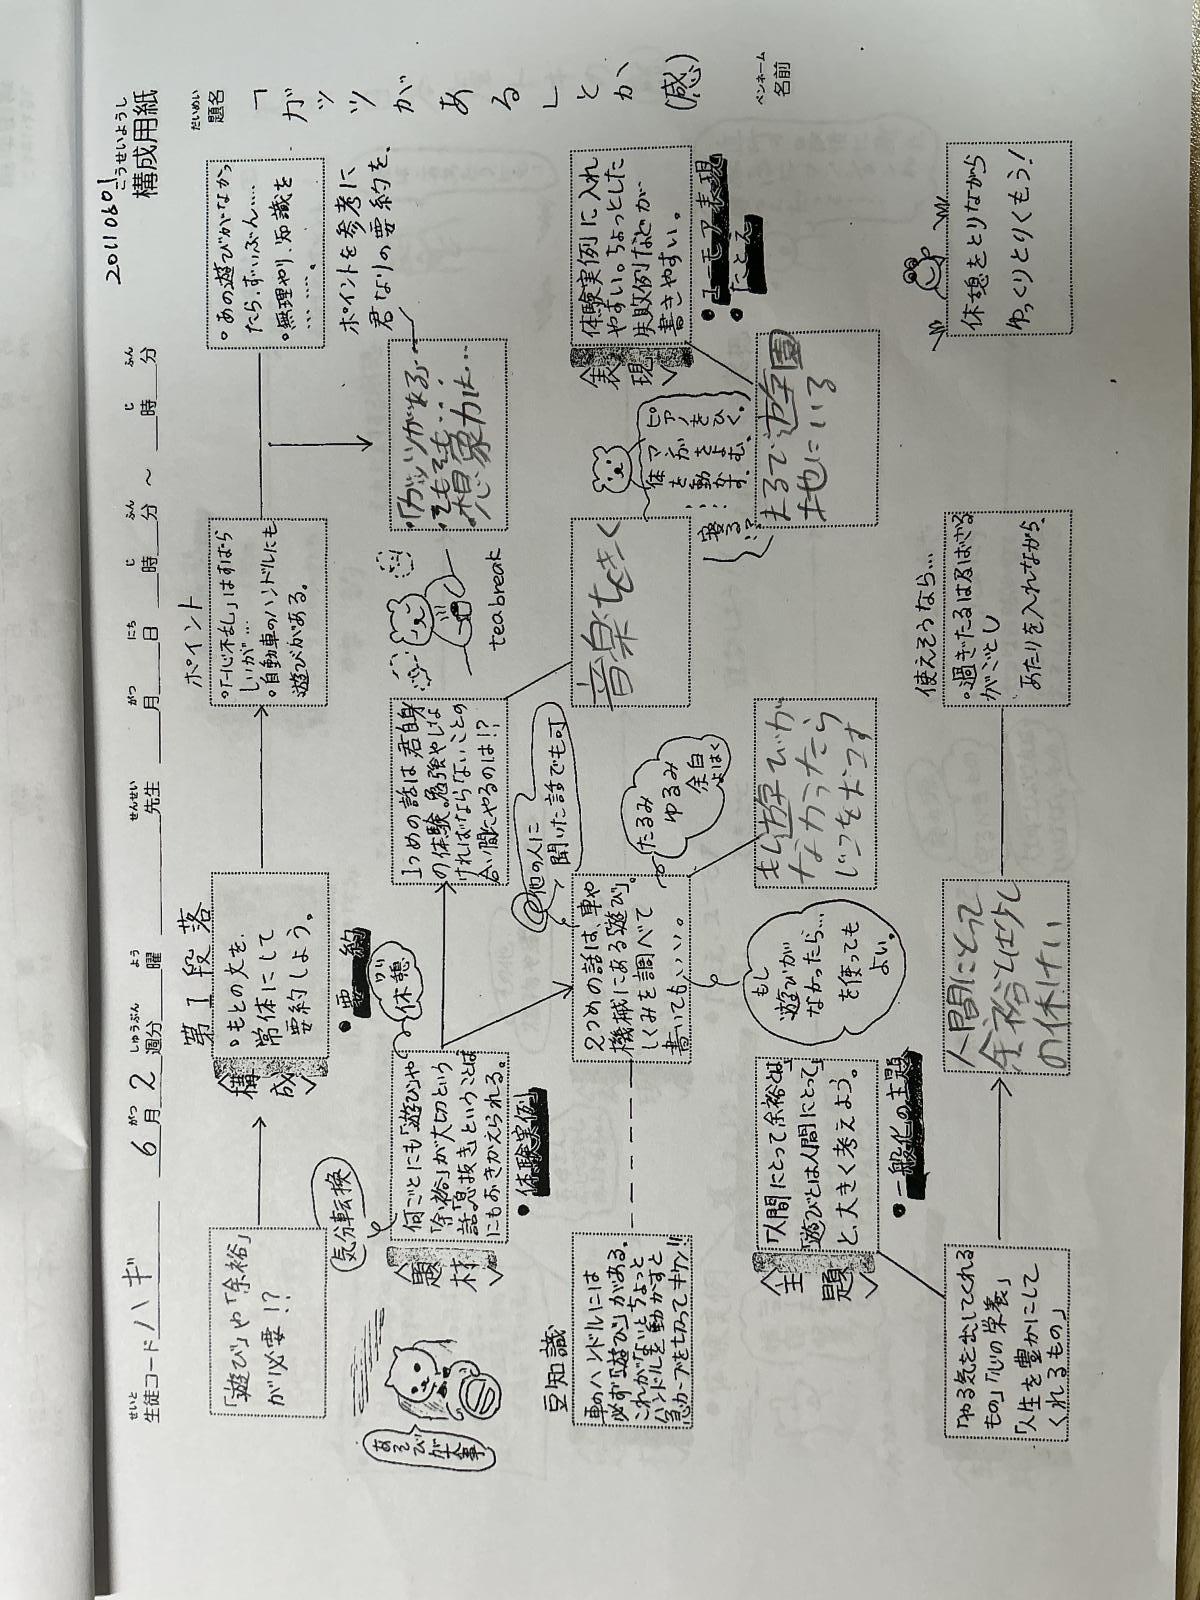 20110601
こうせいようし
構成用紙
せいと
生徒コード ハギ
がつ しゅうぶん よう
6月2週分 曜
せんせい
先生
がつ にち じ ふん じ ふん
月 日 時 分 ～ 時 分
だいめい
題名
「ガッツがある」とか(感)
ペンネーム
名前
「遊び」や「余裕」
が必要!?
第1段落
構成
。もとの文を
常体にして
要約しよう。
・要約
ポイント
しいが…
。自動車のハンドルにも
遊びがある。
。あの遊びがなかっ
たら、ずいぶん……
。無理やり、知識を
………。
ポイントを参考に
君なりの要約を、
そもそも…
想象力は…
あそびが大事
気分転換
題材
何ごとにも「遊び」や
「余裕」が大切という
話。「息抜き」ということば
にもおきかえられる。
・体験実例
休憩
1つめの話は君自身
の体験。勉強やしな
ければならないことの
合い間にやるのは!?
tea break
音楽をきく
ピアノをひく。
マンガをよむ。
体を動かす、
……
寝る!?
表現
体験実例に入れ
やすい。ちょっとした
失敗例などが
書きやすい。
・ユーモア表現
豆知識
車のハンドルには
必ず「遊び」がある。
これがないとちょっと
ハンドルを動かすと
急カーブを切ってキケン!!
2つめの話は、車や
機械にある「遊び」。
しくみを調べて
書いてもいい。
他の人に
聞いた話でも可
たるみ
ゆるみ
余白
よはく
もし
遊びが
なかったら…
を使っても
よい。
もし遊びが
なかったら
まるで遊園
地にいる
主題
「人間にとって余裕とは」
「遊びとは人間にとって」
と、大きく考えよう。
・一般化の主題
「やる気を出してくれる
もの」「心の栄養」
「人生を豊かにして
くれるもの」
人間にとって
余裕とは少し
の休けい
使えそうなら…
。過ぎたるは及ばざる
がごとし
あたりを入れながら、
休憩をとりながら
ゆっくりとりくもう!